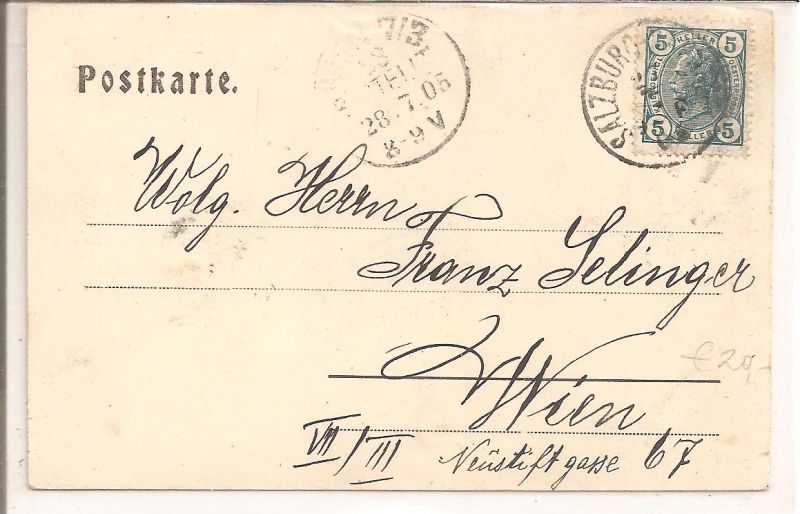 Postkarte.
7/3
28.7.05
8-9 V
SALZBURG
5 HELLER 5
5 HELLER 5
Wolg. Herrn
Franz Selinger
Wien
€20,-
VII/III Neustiftgasse 67